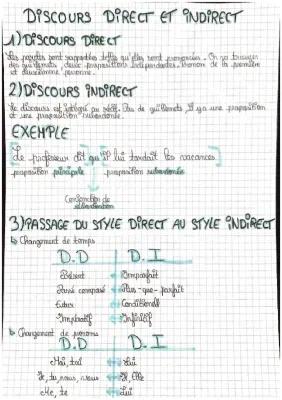 DISCOURS DIRECT ET INDIRECT
1) DISCOURS DIRECT
Les paroles sont rapportées telles qu'elles sont prononcées. On va trouver
des guillemets, deux propositions indépendantes. Emploi de la première
et deuxième personne.
2) DISCOURS INDIRECT
Le discours est intégré au récit. Pas de guillemets. Il y a une proposition
et une proposition subordonnée.
EXEMPLE
Le professeur dit qu'il lui tardait les vacances
proposition principale proposition subordonnée
Conjonction de
subordination
3) PASSAGE DU STYLE DIRECT AU STYLE INDIRECT
Changement de temps
D.D D.I
Présent Imparfait
Passé composé Plus-que-parfait
Futur Conditionnel
Impératif Infinitif
Changement de pronoms
D.D D.I
Moi, toi Lui
Je, tu, nous, vous Il, Elle
Me, te Lui